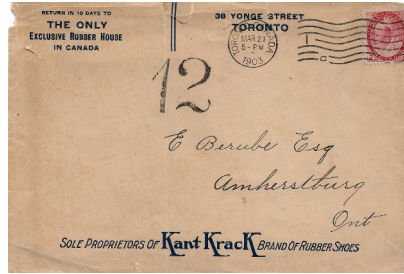 RETURN IN 10 DAYS TO
THE ONLY
EXCLUSIVE RUBBER HOUSE
IN CANADA
38 YONGE STREET
TORONTO
TORONTO CANADA
MAR 23
5-PM
1903
I
C
12
E Berube Esq
Amherstburg
Ont
SOLE PROPRIETORS OF Kant KracK BRAND OF RUBBER SHOES